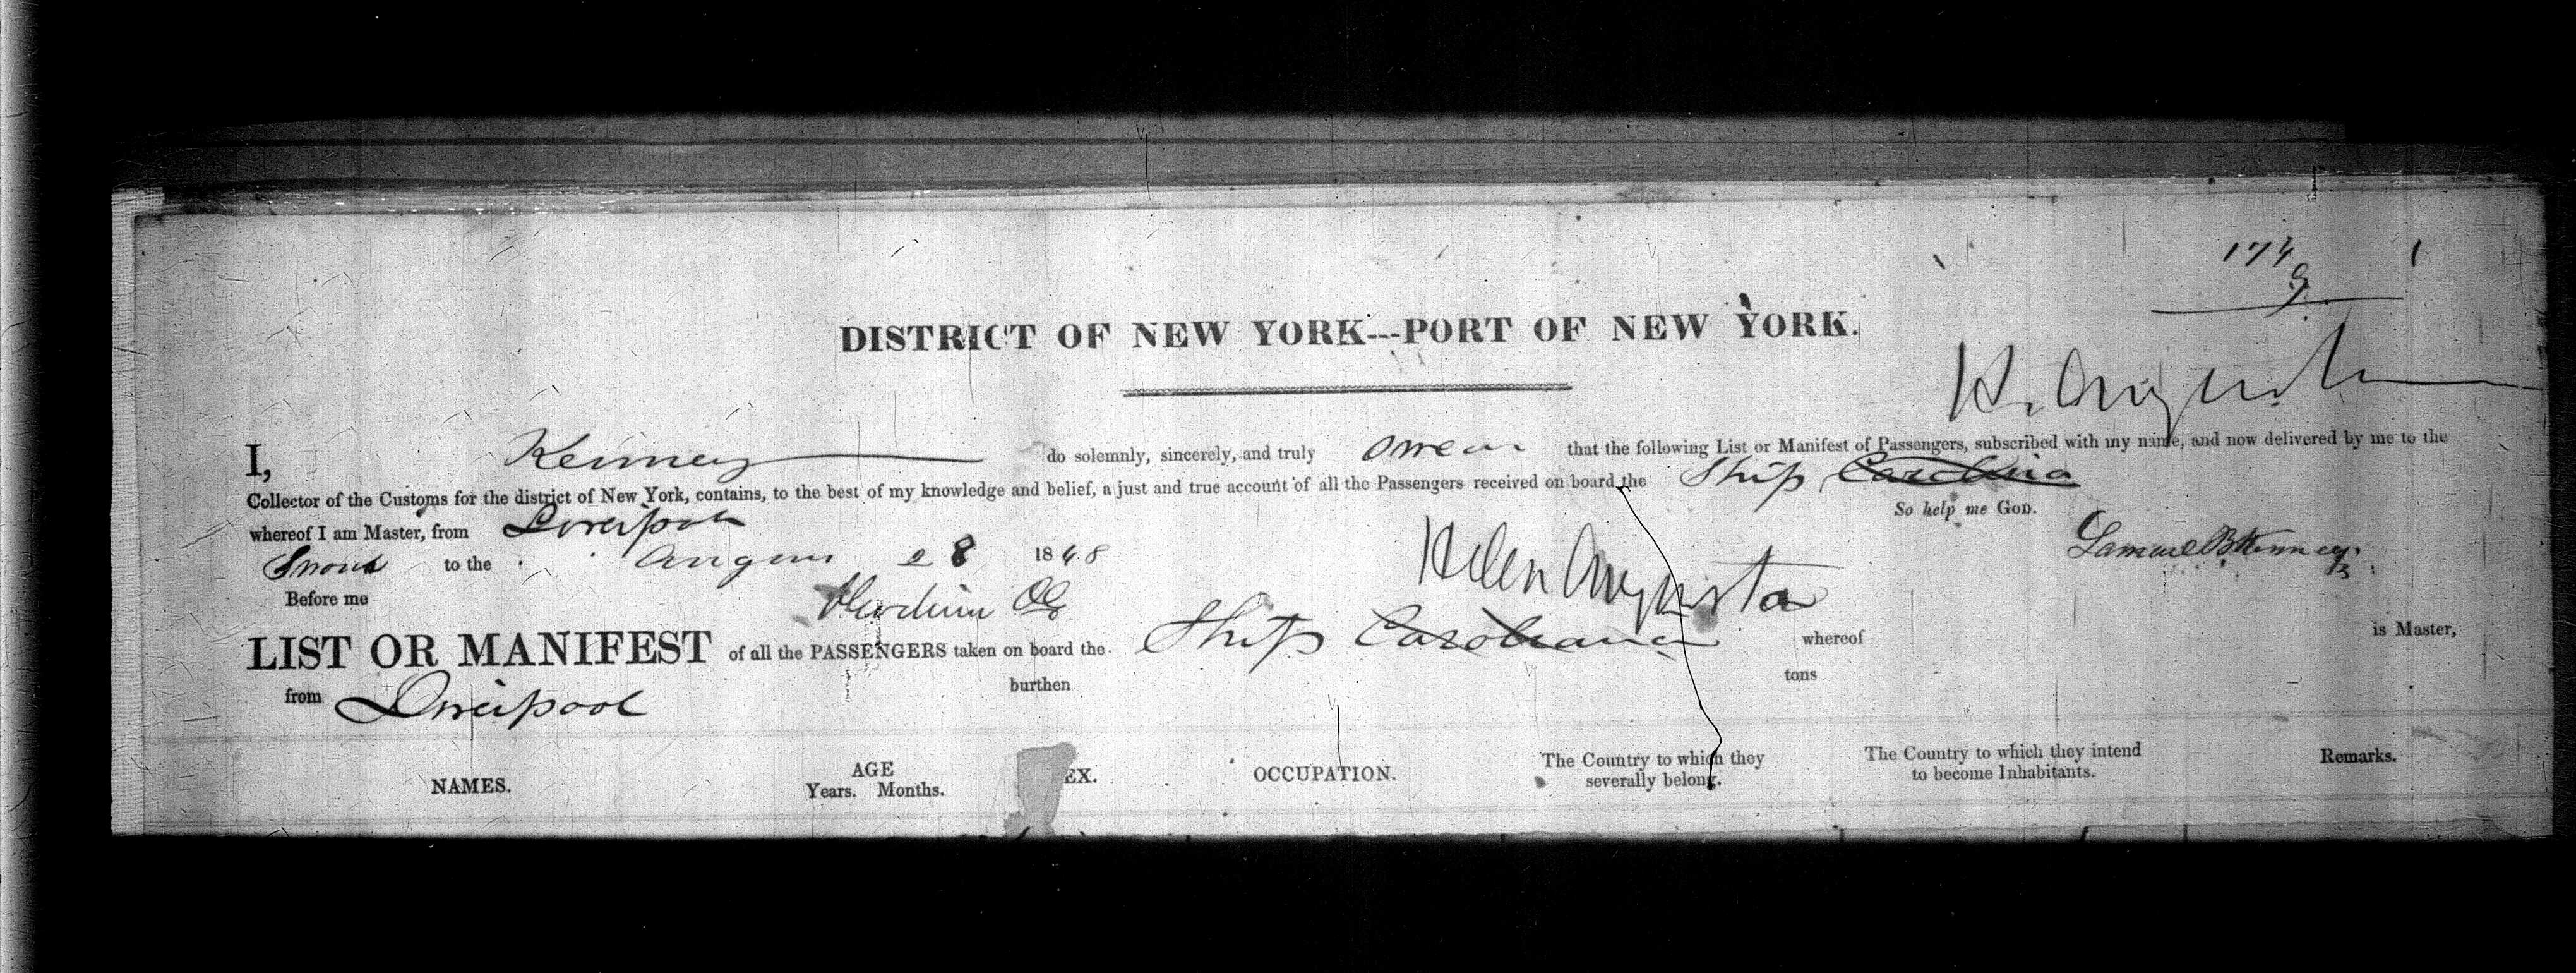 174 1
9
DISTRICT OF NEW YORK---PORT OF NEW YORK.
H. Augusta
I, Kenney do solemnly, sincerely, and truly swear that the following List or Manifest of Passengers, subscribed with my name, and now delivered by me to the
Collector of the Customs for the district of New York, contains, to the best of my knowledge and belief, a just and true account of all the Passengers received on board the Ship
whereof I am Master, from Liverpool So help me GOD.
Sworn to the August 28 1848 Samuel B Kenney
Before me
Helen Augusta
LIST OR MANIFEST of all the PASSENGERS taken on board the Ship whereof is Master,
from Liverpool burthen tons
NAMES. AGE Years. Months. EX. OCCUPATION. The Country to which they severally belong. The Country to which they intend to become Inhabitants. Remarks.